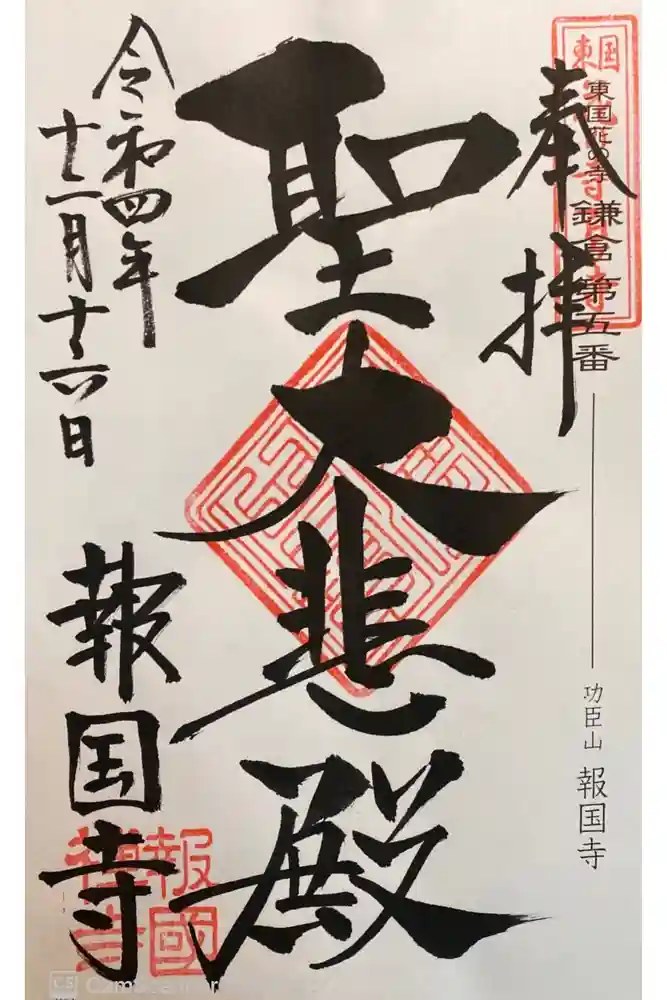 奉拝
東国花の寺 鎌倉第五番
功臣山 報国寺
聖大悲殿
令和四年
十一月十六日
報国寺
報國